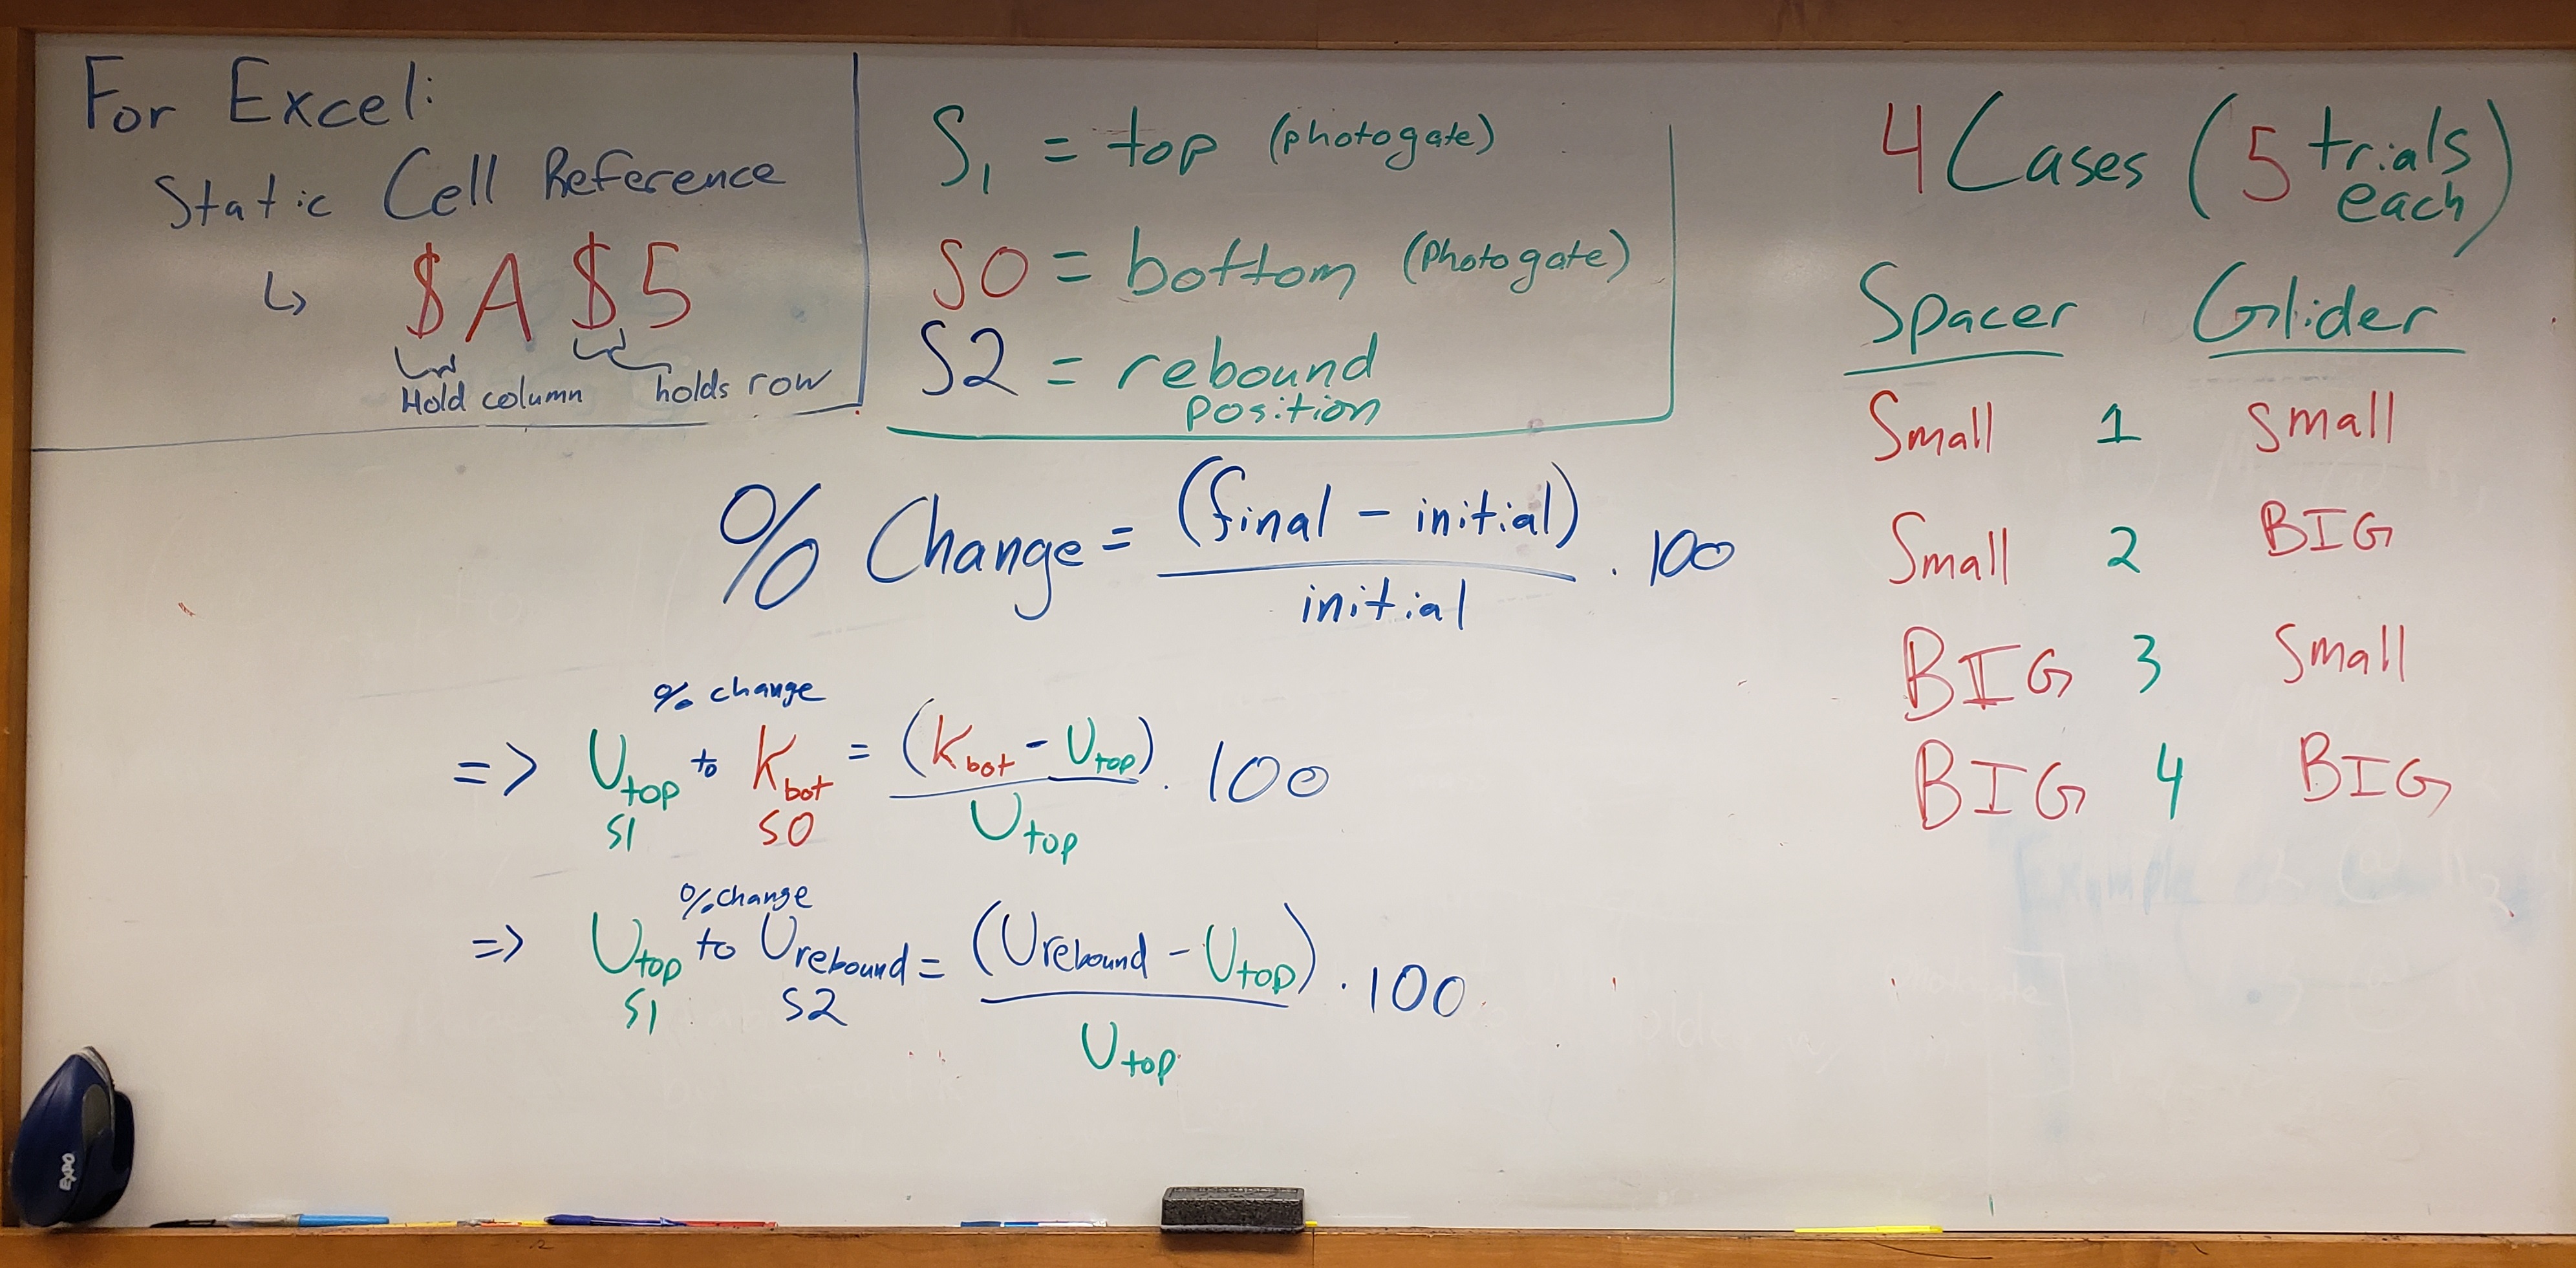 For Excel:
Static Cell Reference
↳ $A $5
Hold column holds row
S₁ = top (photogate)
S0 = bottom (Photogate)
S2 = rebound
position
4 Cases (5 trials
each)
Spacer Glider
Small 1 small
Small 2 BIG
BIG 3 Small
BIG 4 BIG
% Change = (final - initial) / initial . 100
% change
=> U top to K bot = (K bot - U top) / U top . 100
S1 S0
% change
=> U top to U rebound = (U rebound - U top) / U top . 100
S1 S2
EXPO